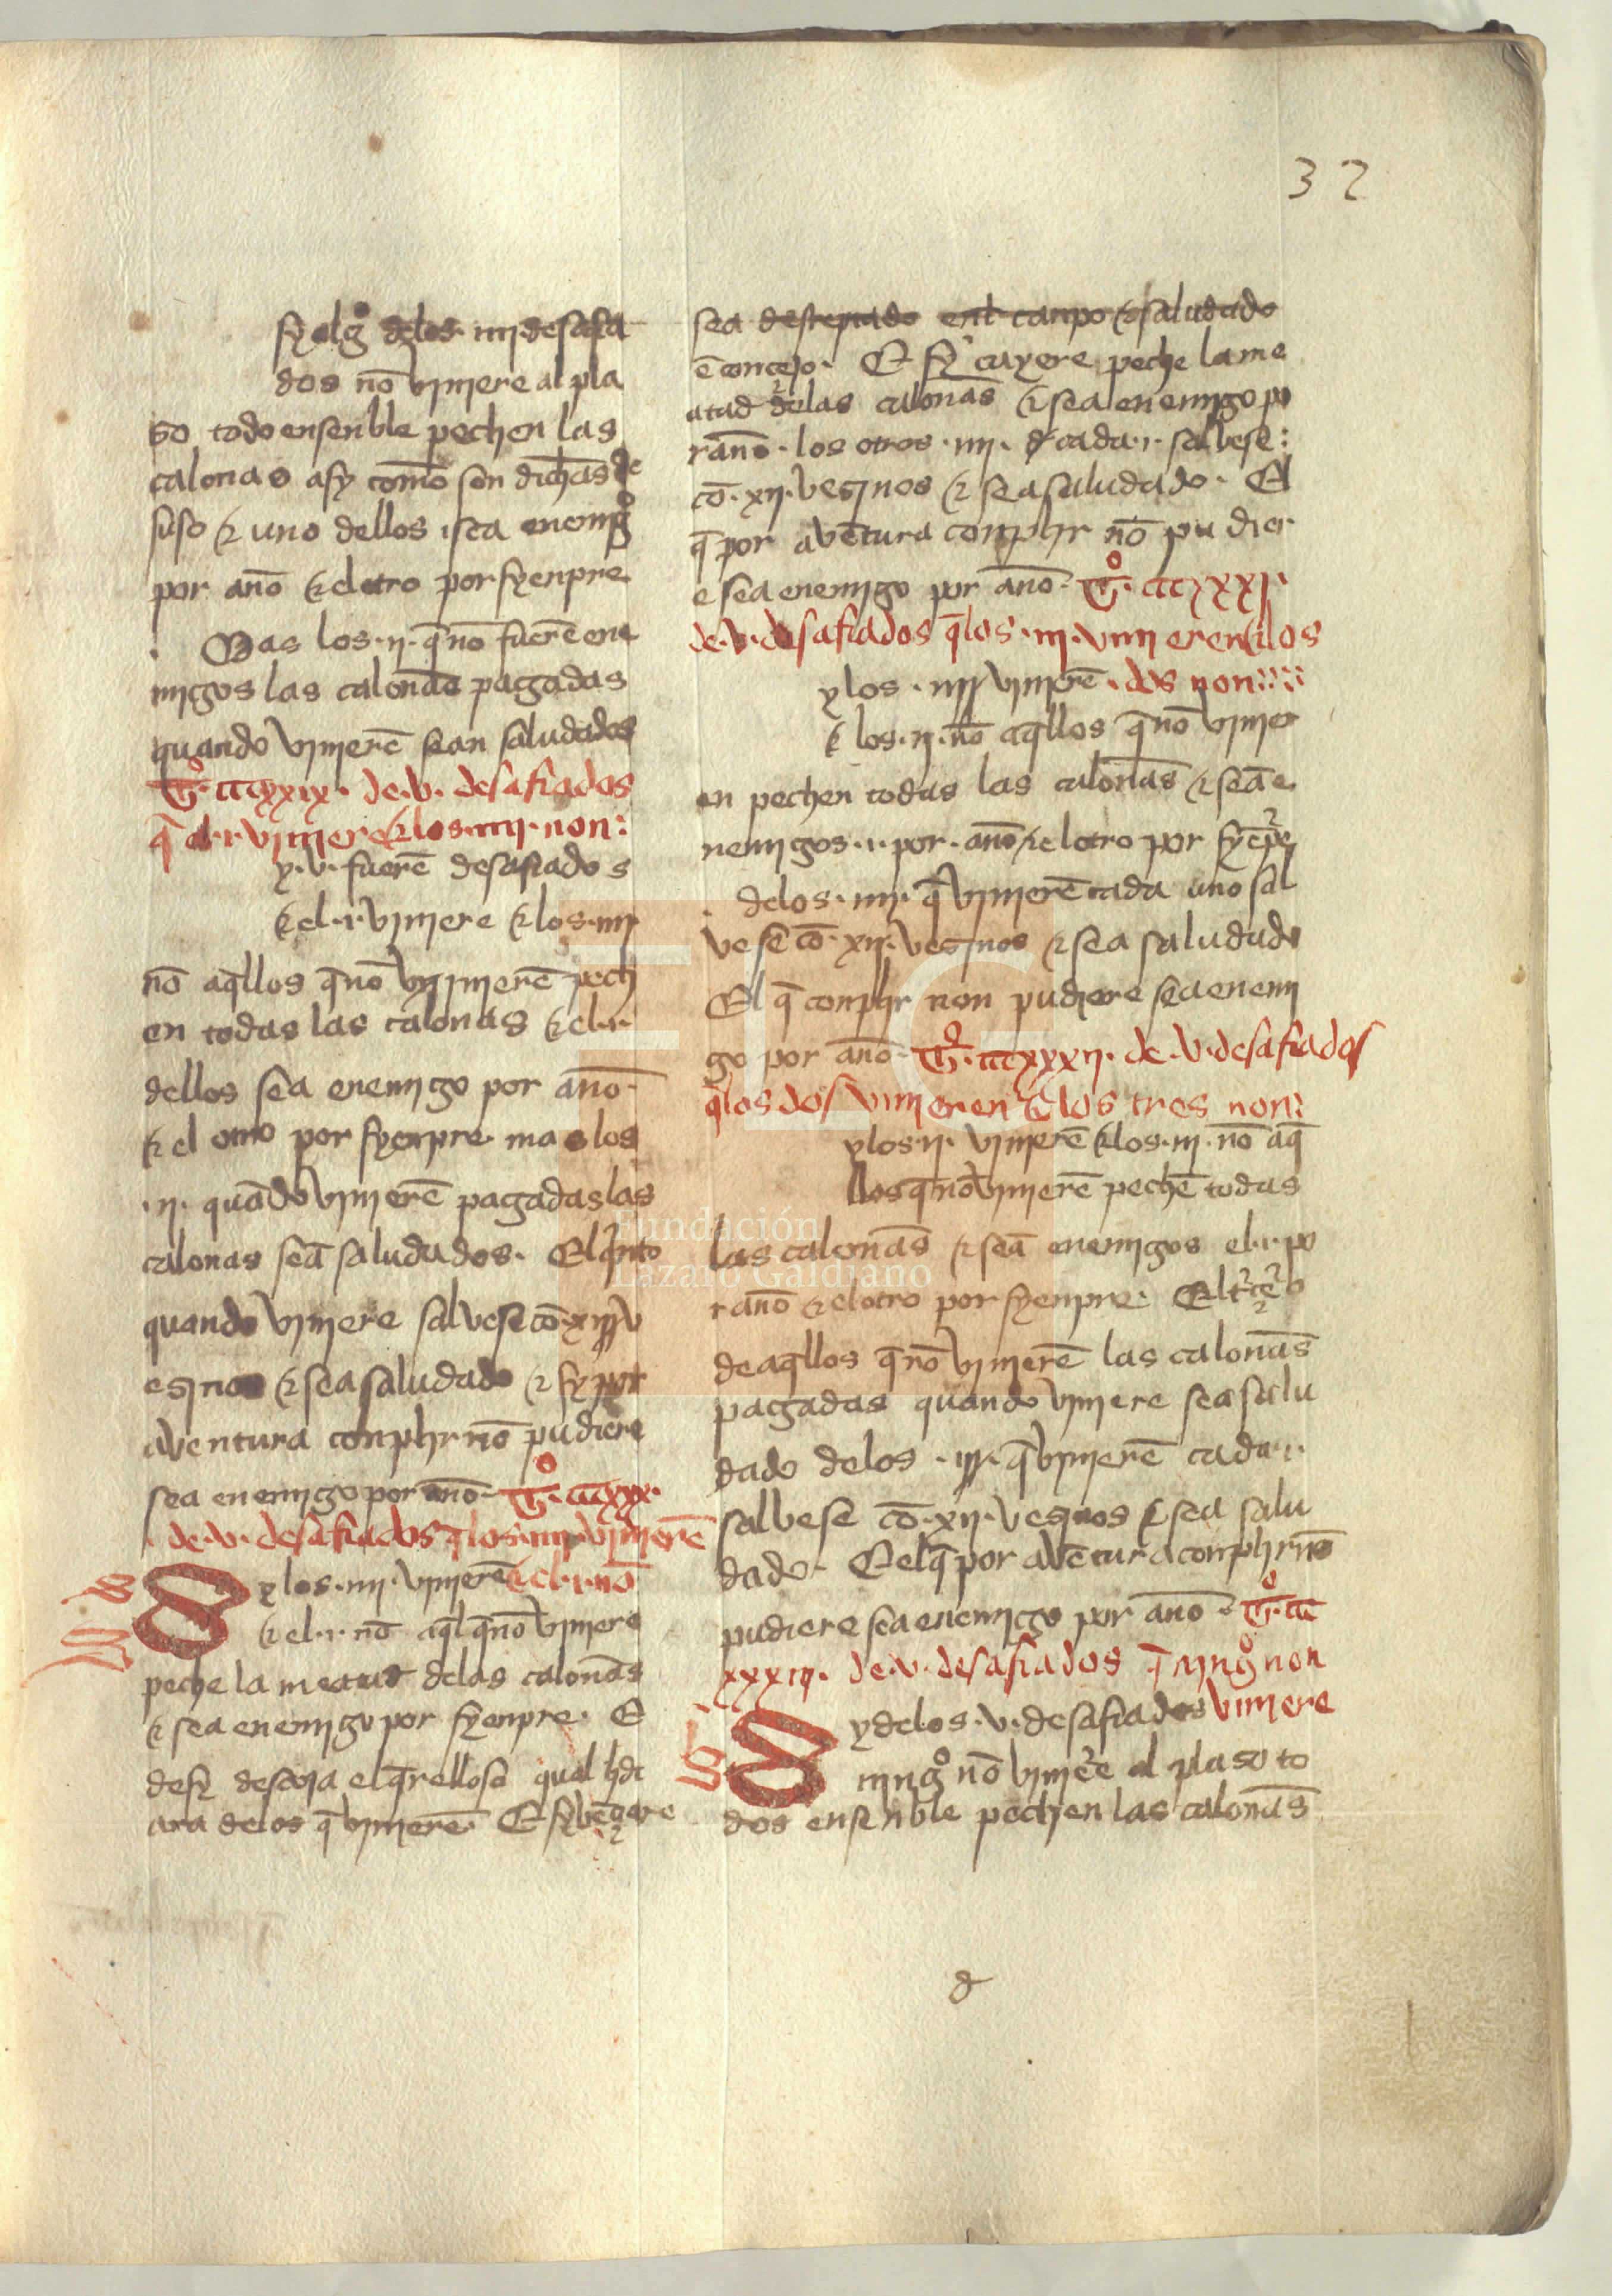 32
sy alg̃o delos ·iiij· desafia
dos nõ vinjere al pla
so todo ensenble pechen las
calonas asy como son dichas de
suso & uno dellos sea enemig̃o
por año & el otro por syenpre
Mas los ·ij· q̃ no fuerẽ ene
migos las caloñas pagadas
quando vinjerẽ sean saludados
T̊· ccxxix· de ·v· desafiados
q̃ el ·i· vinjere & los ·iiij· non:
y ·v· fuerẽ desafiados
& el ·i· vinjere & los ·iiij·
nõ aq̃llos q̃ no vinjerẽ pech
en todas las calonas & el ·i·
dellos sea enemigo por año·
& el otro por syenpre mas los
·ij· quãdo vinjerẽ pagadas las
calonas seã saludados· El q̃nto
quando vinjere salvese cõ ·xij· v
esjnos & sea saludado & sy por
aventura conplir nõ pudiere
sea enemigo por año· T̊· ccxxx·
· de ·v· desafiados q̃ los ·iiij· vinjerẽ
S y los ·iiij· vinjerẽ & el ·i· nõ
& el ·i· nõ aq̃l q̃ no vinjere
peche la meatat delas caloñas
& sea enemigo por syenpre· E
desy escoja el q̃relloso qual
delos q̃ vinjerẽ· E sy vẽçiere
sea destepiado enl canpo & saludado
ẽ conçejo· E sy cayere peche la me
atad delas caloñas & sea enemigo po
r año· los otros ·iiij· cada ·i· salvese:
cõ ·xij· vesjnos & sea saludado· El
q̃ por avẽtura conplir nõ pudier
e sea enemigo por año· T̊· ccxxxj·
de ·v· desafiados q̃ los ·iij· vinjeren & los
y los ·iij· vinjerẽ · dos non
& los ·ij· nõ aq̃llos q̃ no vinjer
en pechen todas las caloñas & seã e
nemigos ·i· por · año & el otro por syẽpre
· delos ·iij· q̃ vinjerẽ cada uno sal
vese cõ ·xij· vesjnos & sea saludado
El q̃ conplir non pudiere sea enemi
go por año· T̊· ccxxxij· de ·v· desafiados
q̃ los dos vinjeren & los tres non:
y los ·ij· vinjerẽ & los ·iij· nõ aq̃
llos q̃ no vinjerẽ pechẽ todas
las caloñas & seã enemigos el ·i· po
r año & el otro por syenpre· El t̃çero
de aq̃llos q̃ nõ vinjerẽ las caloñas
pagadas quando vinjere sea salu
dado delos ·ij· q̃ vinjerẽ cada ·i·
salvese cõ ·xij· vesjnos & sea salu
dado· E el q̃ por avẽtura conplir no
pudiere sea enemigo por año· T̊· cc
xxxiij· de ·v· desafiados q̃ njng̊ non
S y delos ·v· desafiados vinjere
njng̊ nõ vinjere al plaso to
dos ensenble pechen las caloñas